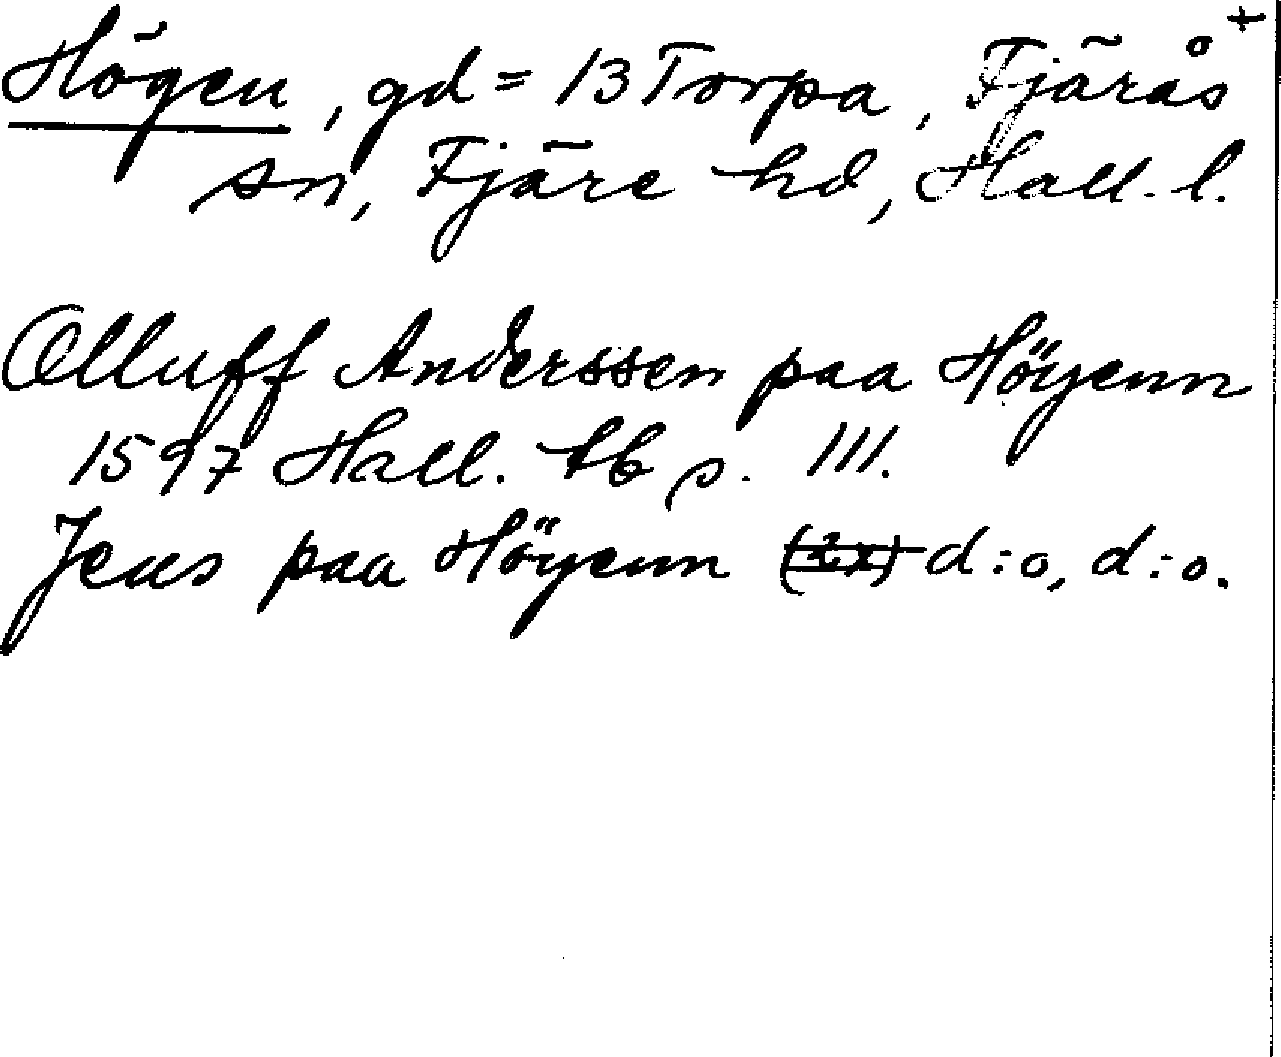 Högen, gd = 13 Torpa, Fjärås +
sn, Fjäre hd, Hall. l.
Olluff Anderssen paa Höyenn
1597 Hall. tb s. 111.
Jens paa Höyenn (2x) d:o, d:o.